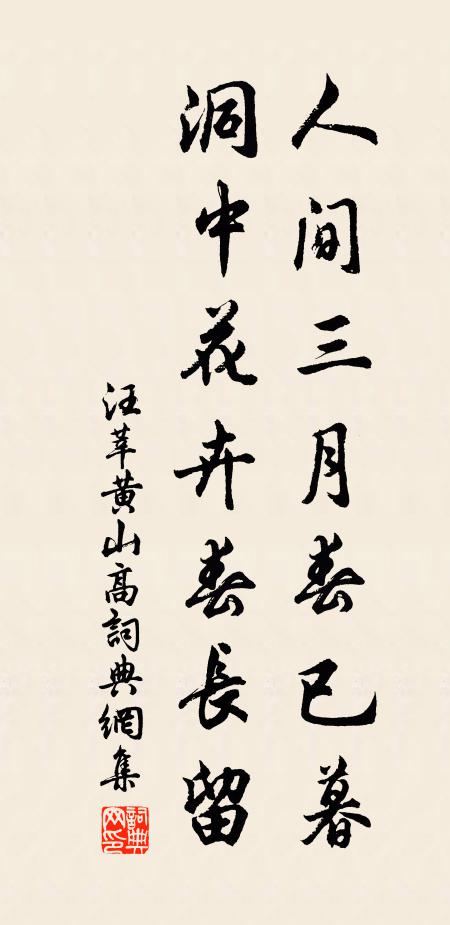 人间三月春已暮
洞中花卉春長留
汪莘黄山高詞典網集
詞典
网印